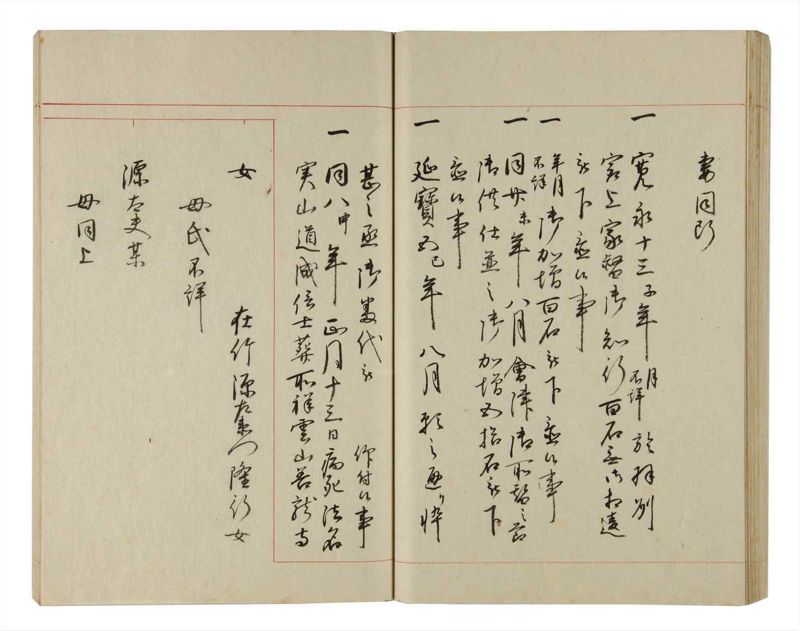 妻同断
一 寛永十三子年月不詳 於羽州
家上家督御知行百石無御相違
被下置候事
一 年月不詳 御加増百石被下置候事
一 同廿未年八月會津御所替之節
御供仕並之御加増五拾石被下
置候事
一 延寶五巳年八月願之通り悴
甚之丞御番代被 仰付候事
一 同八申年正月十三日病死法名
実山道誠信士葬所祥雲山善龍寺
女
母氏不詳
在竹源左衛門隆行女
源太夫某
母同上